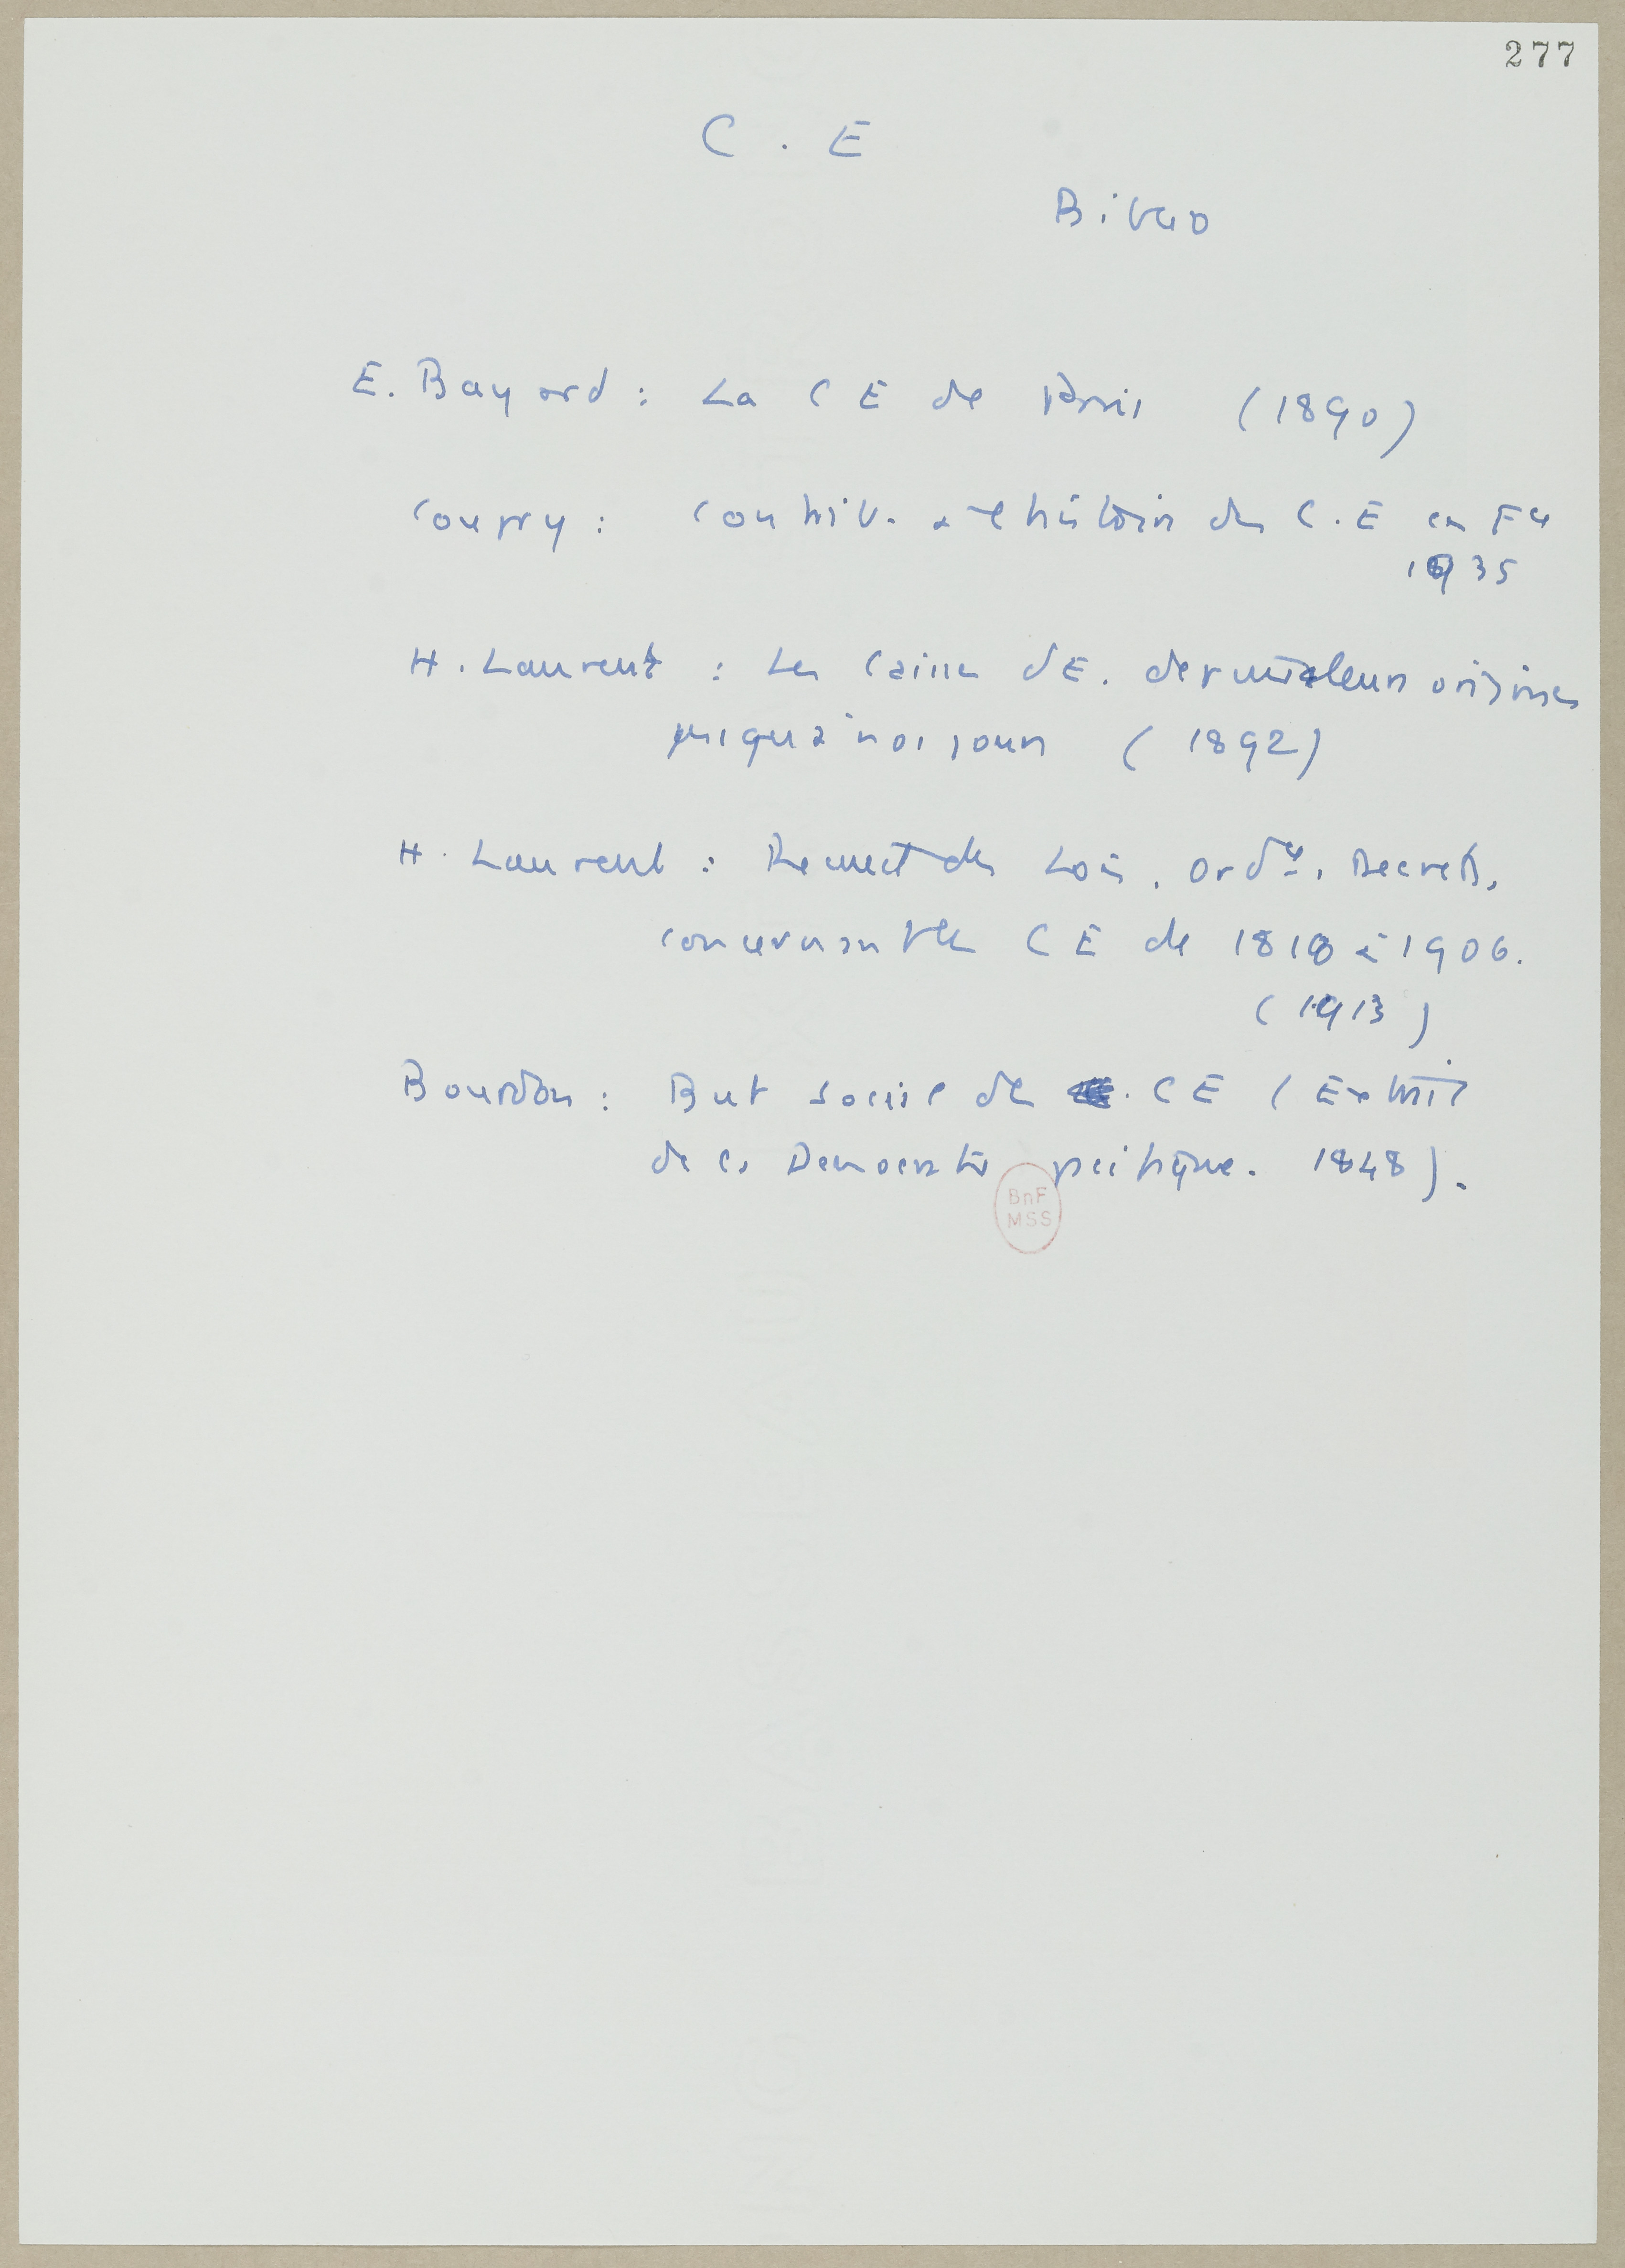 277
C . E
Biblio
E. Bayard : La C E de Paris (1890)
Coupry : Contrib. à l'histoire des C.E en Fce
1935
H. Laurent : Les Caisses d'E. depuis leurs origines
jusqu'à nos jours (1892)
H. Laurent : Recueil des Lois, Ordces, Decrets,
concernant les CE de 1818 à 1906.
(1913)
Bourdon : But social des CE (Extrait
de la Democratie pacifique. 1848).
BnF
MSS